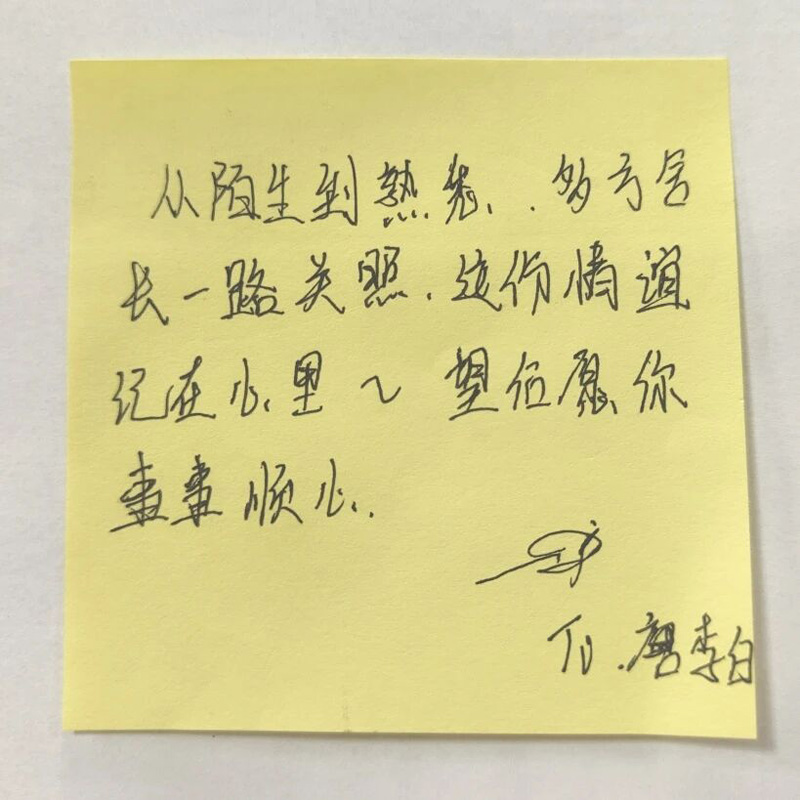 从陌生到熟悉，多亏室
长一路关照，这份情谊
记在心里～ 愿你
事事顺心.
To.唐李白